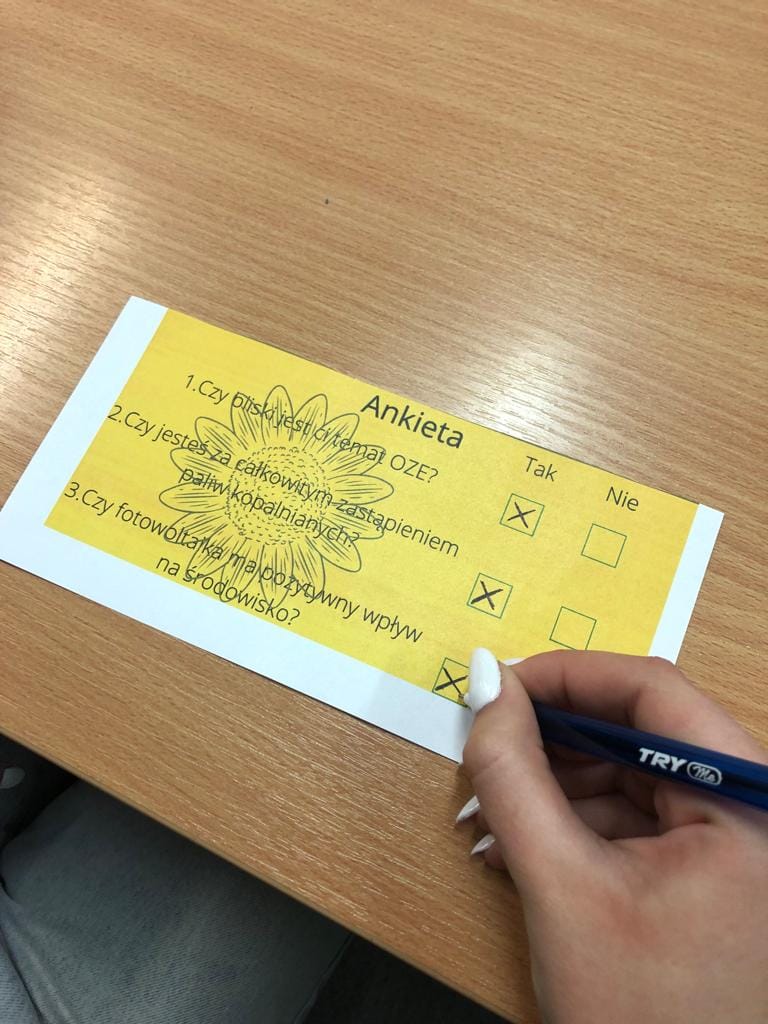 Ankieta
Tak
Nie
1.Czy bliski jest ci temat OZE?
2.Czy jesteś za całkowitym zastąpieniem
paliw kopalnianych?
3.Czy fotowoltaika ma pozytywny wpływ
na środowisko?
TRY Me